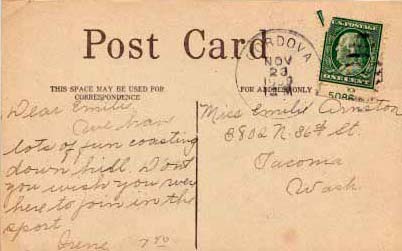 Post Card
THIS SPACE MAY BE USED FOR
CORRESPONDENCE
FOR ADDRESS ONLY
CORDOVA
NOV
23
U.S. POSTAGE
ONE CENT
Dear Emilie
We have
lots of fun coasting
down hill. Dont
you wish you were
here to join in the
sport
Irene
Miss Emilie
N. 36th St.
Tacoma
Wash